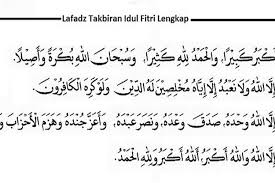 Lafadz Takbiran Idul Fitri Lengkap
كْبَرُ كَبِيْرًا، وَالْحَمْدُ لِلّٰهِ كَثِيْرًا، وَسُبْحَانَ اللهِ بُكْرَةً وَأَصِيْلًا.
إِلَّا اللهُ وَلَا نَعْبُدُ إِلَّا إِيَّاهُ مُخْلِصِيْنَ لَهُ الدِّيْنَ وَلَوْ كَرِهَ الْكَافِرُوْنَ.
إِلَّا اللهُ وَحْدَهُ، صَدَقَ وَعْدَهُ، وَنَصَرَ عَبْدَهُ، وَأَعَزَّ جُنْدَهُ وَهَزَمَ الْأَحْزَابَ وَ
إِلَّا اللهُ وَاللهُ أَكْبَرُ، اللهُ أَكْبَرُ وَلِلّٰهِ الْحَمْدُ.